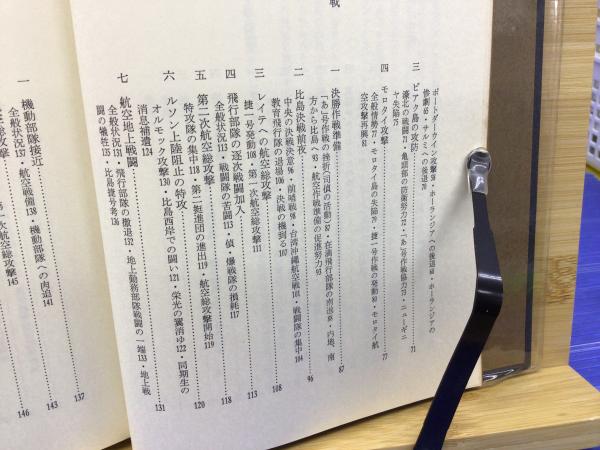 戦
ポートダーウィン攻撃59・ホーランジアへの後退68・ホーランジアの
惨劇65・サルミへの後退70
三 ビアク島の攻防……71
濠北の戦闘71・亀部部の防衛努力72・「あ」号作戦協力73・ニューギニ
ヤ失陥75
四 モロタイ攻撃……77
全般情勢77・モロタイ島の失陥79・捷一号作戦の発動80・モロタイ航
空攻撃再興81
一 決勝作戦準備……87
「あ」号作戦の挫折(司偵の活動)87・在満飛行部隊の南進・内地、南
方から比島へ93・航空作戦準備の促進努力93
二 比島決戦前夜……96
中央の決戦決意96・前哨戦98・台湾沖縄航空戦101・戦闘隊の集中104
教育飛行隊の退場106・決戦の機到る107
三 レイテへの航空総攻撃……108
捷一号発動108・第一次航空総攻撃111
四 飛行部隊の逐次戦闘加入……113
全般状況113・戦闘隊の苦闘113・偵・爆戦隊の損耗117
五 第二次航空総攻撃……118
特攻隊の集中118・第二挺進団の進出119・航空総攻撃開始119
六 ルソン上陸阻止の特攻……120
オルモック攻撃130・比島西岸での闘い121・栄光の翼消ゆ122・同期生の
消息補遺124
七 航空地上戦闘……131
全般状況131・飛行部隊の撤退132・地上勤務部隊戦闘の一端133・地上戦
闘の犠牲135・比島捷号考126
一 機動部隊接近……137
全般状況137・航空戦備138・機動部隊への肉迫141
……143
第一次航空総攻撃145
……146